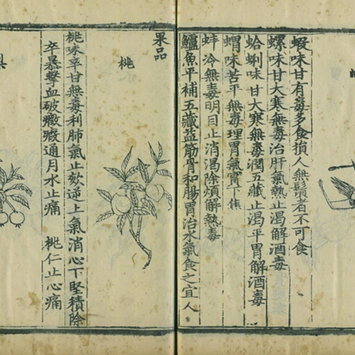 蝦味甘有毒多食損人無鬚者不可食
螺味甘大寒無毒治肝氣熱止渴解酒毒
蛤蜊味甘大寒無毒潤五藏止渴平胃解酒毒
蝟味苦平無毒理胃氣實下焦
蚌冷無毒明目止消渴除煩解熱毒
鱸魚平補五藏益筋骨和腸胃治水氣食之宜人
果品
桃
桃味辛甘無毒利肺氣止欬逆上氣消心下堅積除
卒暴擊血破癥瘕通月水止痛 桃仁止心痛